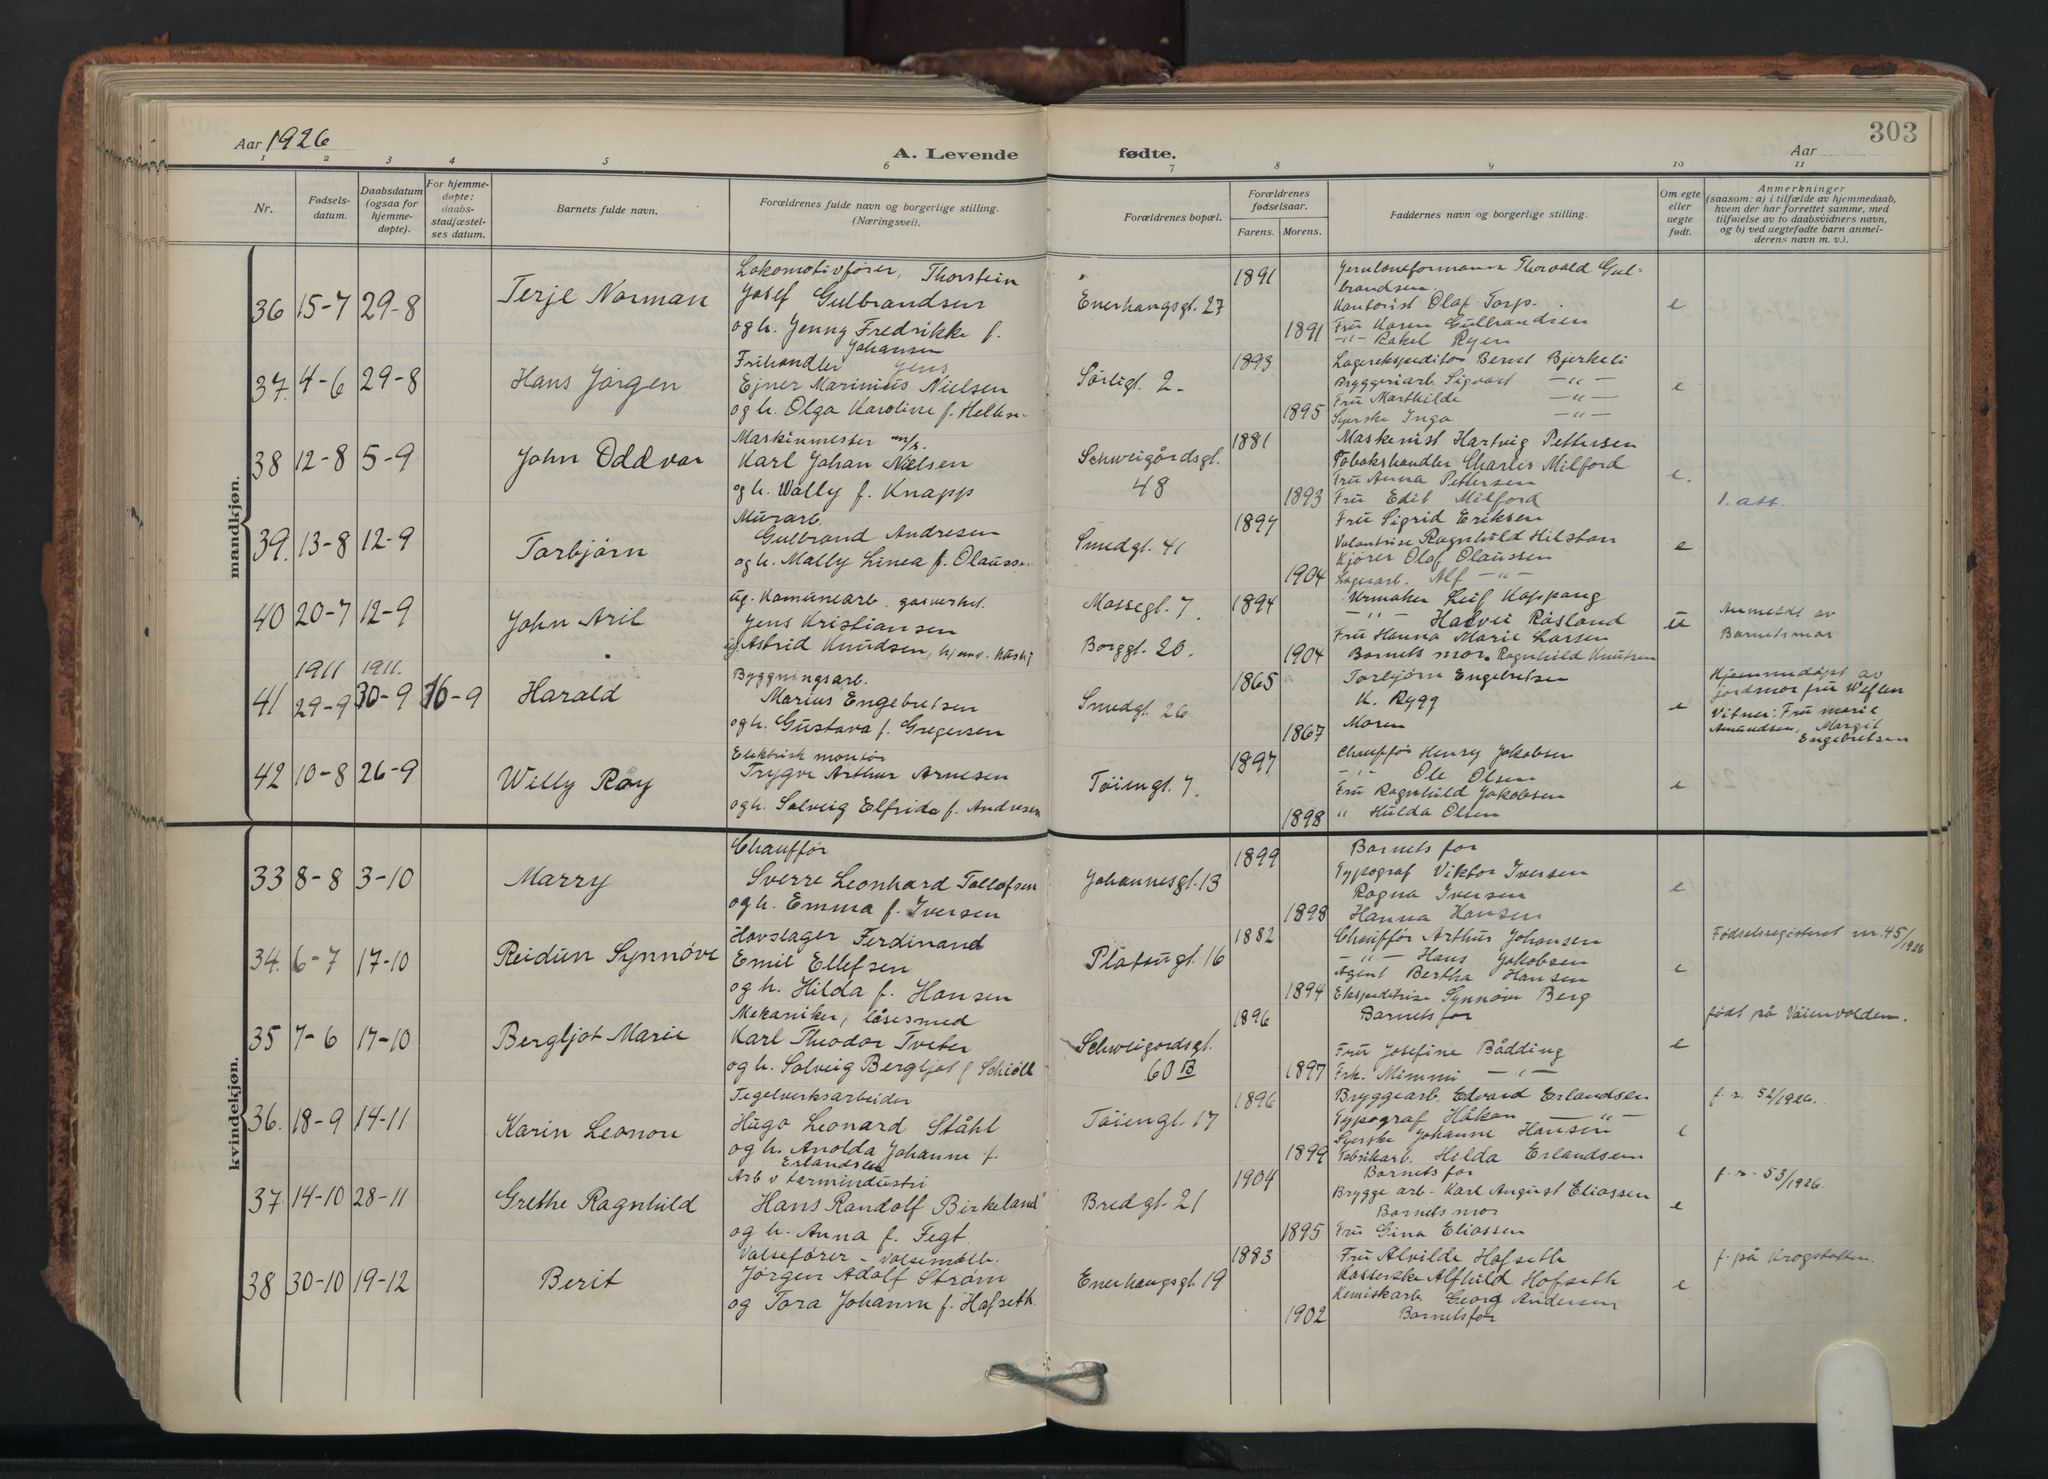 Aar 1926
A. Levende fødte.
303
Aar
1 2 3 4 5 6 7 8 9 10 11
Nr.
Fødsels-
datum.
Daabsdatum
(ogsaa for
hjemme-
døpte).
For hjemme-
døpte:
daabs-
stadfæstel-
ses datum.
Barnets fulde navn.
Forældrenes fulde navn og borgerlige stilling.
(Næringsvei).
Forældrenes bopæl.
Forældrenes
fødselsaar.
Farens. Morens.
Faddernes navn og borgerlige stilling.
Om egte
eller
uegte
født.
Anmerkninger
(saasom: a) i tilfælde av hjemmedaab,
hvem der har forrettet samme, med
tilføielse av to daabsvidners navn,
og b) ved uegtefødte barn anmel-
derens navn m. v.).
mandkjøn.
36 15-7 29-8 Terje Norman
Lokomotivfører, Thorstein
Josef Gulbrandsen
og h. Jenny Fredrikke f.
Johansen
Enerhaugsgt. 27
1891
1891
Jernbaneformann Thorvald Gul-
brandsen.
Kontorist Olaf Torp.
Fru Karen Gulbrandsen
-"- Rakel Ryen
e
37. 4-6 29-8 Hans Jørgen
Frihandler Jens
Ejner Marinius Nielsen
og h. Olga Karoline f.
Sørligt. 2.
1893
1895
Lagerekspeditør Bernt Bjerkeli
Bryggeriarb. Sigvart -"-
Fru Marthilde -"-
Syerske Inga -"-
e
38 12-8 5-9 John Oddvar
Maskinmester m/s.
Karl Johan Nielsen
og h. Wally f. Knapp
Schweigårdsgt.
48
1881
1893
Maskinist Hartvig Pettersen
Tobakshandler Charles Milford
Fru Anna Pettersen
Fru Edit Milford
e.
1. att.
39. 13-8 12-9 Torbjørn
Murarb.
Gulbrand Andresen
og h. Mally Linea f. Olaussen
Smedgt. 41
1897
1904
Fru Sigrid Eriksen
Ragnhild Hilstan
Kjører Olaf Olaussen
Lagerarb. Alf -"-
e
40 20-7 12-9 John Aril
ug. Komunearb. gasverket.
Jens Kristiansen
Astrid Knudsen,
Mossegt. 7.
Borggt. 20.
1894
1904
Urmaker Leif Koppang
-"- Halvei Råsland
Fru Hanna Marie Larsen
Barnets mor. Ragnhild Knutsen
u
Anmeldt av
Barnets mor
1911 1911.
41 29-9 30-9 16-9 Harald
Byggningsarb.
Marius Engebretsen
og h. Gustava f. Gregersen
Smedgt. 26
1865
1867
Torbjørn Engebretsen
K. Rygg
Moren
e
Hjemmedøpt av
jordmor fru Weflen
Vitner: Fru Marie
Amundsen, Margit
Engebretsen
42 10-8 26-9 Willy Roy
Elektrisk montør
Trygve Arthur Arnesen
og h. Solveig Elfrida f. Andresen
Tøiengt. 7.
1897
1898
Chauffør Henry Jakobsen
-"- Ole Olsen
Fru Ragnhild Jakobsen
" Hulda Olsen
e
kvindekjøn.
33 8-8 3-10 Marry
Chauffør
Sverre Leonhard Tollofsen
og h. Emma f. Iversen
Johannesgt. 13
1899
1898
Barnets far
Typograf Viktor Iversen
Ragna Iversen
Hanna Hansen
e
34. 6-7 17-10 Reidun Synnøve
Hovslager Ferdinand
Emil Ellefsen
og h. Hilda f. Hansen
Platougt. 16
1882
1894
Chauffør Arthur Johansen
-"- Hans Jakobsen
Agent Bertha Hansen
Ekspeditrise Synnøve Berg
e
Fødselsregisteret nr. 45/1926
35 7-6 17-10 Bergljot Marie
Mekaniker, låsesmed
Karl Theodor Tveter
og h. Solveig Bergljot f. Schiøll
Schweigordsgt.
60 B
1896
1897
Barnets far
Fru Josefine Bådding
Frk. Mimmi -"-
e
født på Våienvolden.
36. 18-9 14-11 Karin Leonon
Tegelverksarbeider
Hugo Leonard Ståhl
og h. Anolda Johanne f.
Erlandsen
Tøiengt. 17
1896
1899
Bryggearb. Edvard Erlandsen
Typograf Håkon -"-
Syerske Johanne Hansen
Fabrikarb. Hilda Erlandsen
e
f. r. 52/1926.
37 14-10 28-11 Grethe Ragnhild
Arb v tarmindustri
Hans Randolf Birkeland
og h. Anna f. Fegt.
Bredgt. 21
1904
1895
Barnets far
Brygge arb. Karl August Eliassen
Barnets mor
Fru Gina Eliassen
e
f. r. 53/1926.
38 30-10 19-12 Berit
Valsefører - Valsemølle.
Jørgen Adolf Strøm
og Tora Johanne f. Hofseth.
Enerhaugsgt. 19
1883
1902
Fru Alvilde Hofseth
Kasserske Alfhild Hofseth
Kemiskarb. Georg Andersen
Barnets far
e
f. på Krogstøtten.